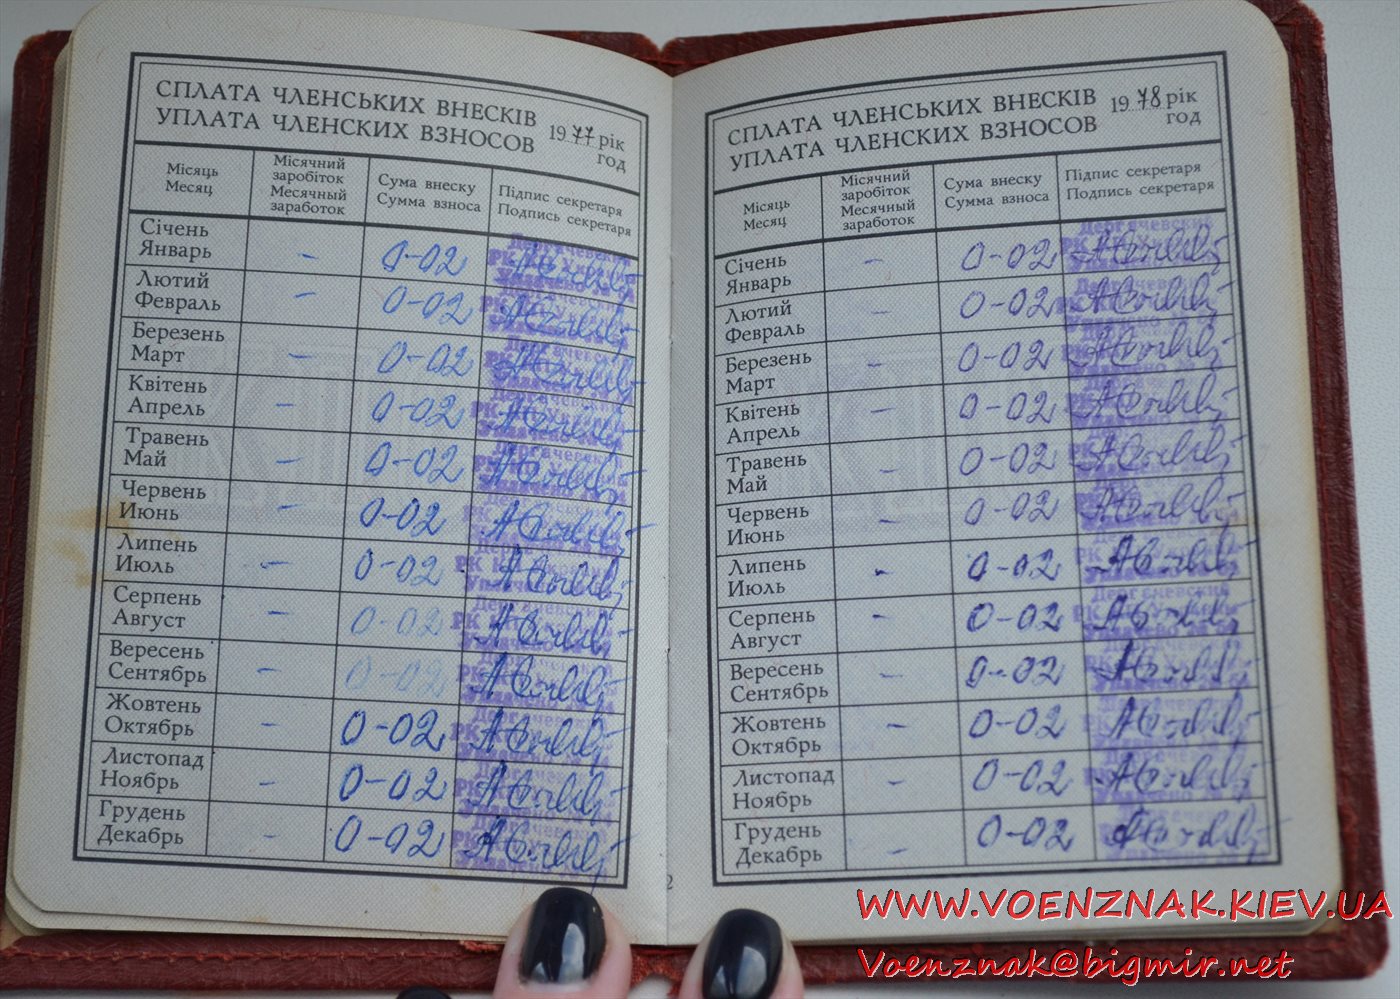 СПЛАТА ЧЛЕНСЬКИХ ВНЕСКІВ
УПЛАТА ЧЛЕНСКИХ ВЗНОСОВ
1977 рік
год
Місяць
Месяц
Місячний
заробіток
Месячный
заработок
Сума внеску
Сумма взноса
Підпис секретаря
Подпись секретаря
Січень
Январь
– 0-02
Лютий
Февраль
– 0-02
Березень
Март
– 0-02
Квітень
Апрель
– 0-02
Травень
Май
– 0-02
Червень
Июнь
– 0-02
Липень
Июль
– 0-02
Серпень
Август
– 0-02
Вересень
Сентябрь
– 0-02
Жовтень
Октябрь
– 0-02
Листопад
Ноябрь
– 0-02
Грудень
Декабрь
– 0-02
2
СПЛАТА ЧЛЕНСЬКИХ ВНЕСКІВ
УПЛАТА ЧЛЕНСКИХ ВЗНОСОВ
1978 рік
год
Місяць
Месяц
Місячний
заробіток
Месячный
заработок
Сума внеску
Сумма взноса
Підпис секретаря
Подпись секретаря
Січень
Январь
– 0-02
Лютий
Февраль
– 0-02
Березень
Март
– 0-02
Квітень
Апрель
– 0-02
Травень
Май
– 0-02
Червень
Июнь
– 0-02
Липень
Июль
– 0-02
Серпень
Август
– 0-02
Вересень
Сентябрь
– 0-02
Жовтень
Октябрь
– 0-02
Листопад
Ноябрь
– 0-02
Грудень
Декабрь
– 0-02
WWW.VOENZNAK.KIEV.UA
Voenznak@bigmir.net